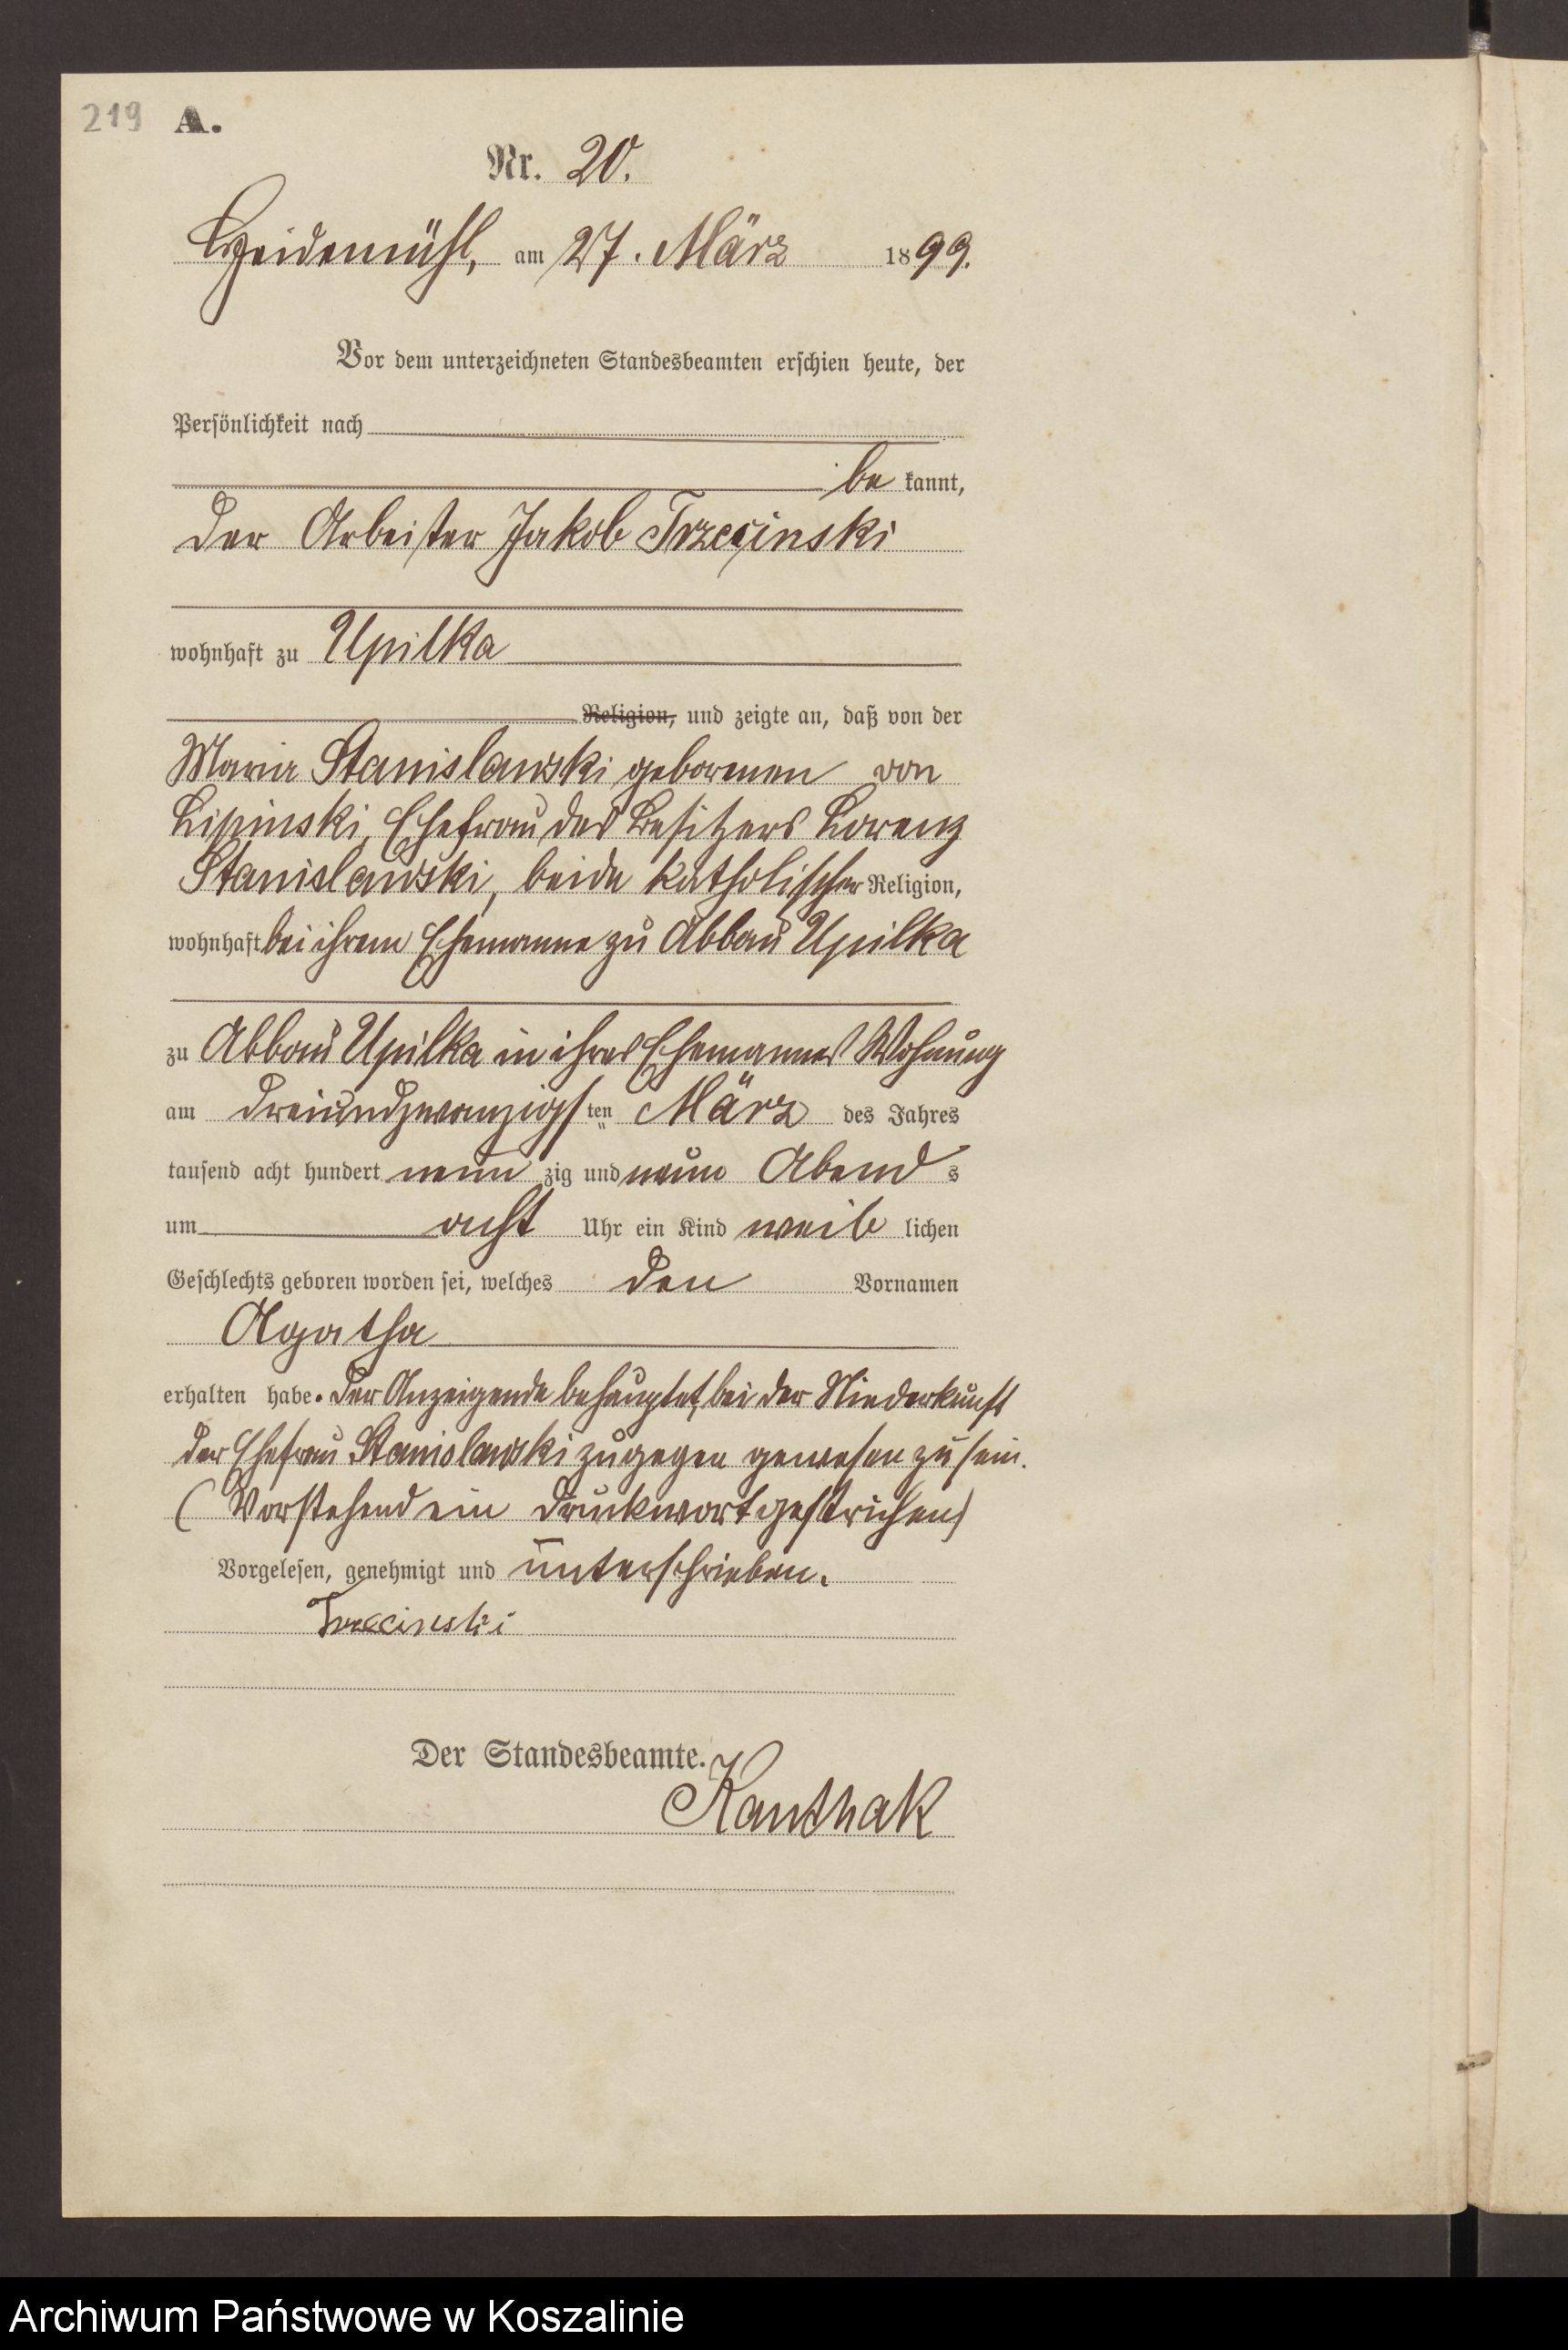 219 A.
Nr. 20.
Heidemühl, am 27. März 1899.
Vor dem unterzeichneten Standesbeamten erschien heute, der
Persönlichkeit nach
be kannt,
der Arbeiter Jakob Trzecinski
wohnhaft zu Upilka
Religion, und zeigte an, daß von der
Maria Stanislawski geborenen von
Lipinski, Ehefrau des Besitzers Lorenz
Stanislawski, beide katholischer Religion,
wohnhaft bei ihrem Ehemanne zu Abbau Upilka
zu Abbau Upilka in ihres Ehemannes Wohnung
am dreiundzwanzigsten März des Jahres
tausend acht hundert neun zig und neun Abend s
um acht Uhr ein Kind weib lichen
Geschlechts geboren worden sei, welches den Vornamen
Agatha
erhalten habe. Der Anzeigende behauptet, bei der Niederkunft
der Ehefrau Stanislawski zugegen gewesen zu sein.
(Vorstehend ein Druckwort gestrichen)
Vorgelesen, genehmigt und unterschrieben.
Trzecinski
Der Standesbeamte.
Kanthak
Archiwum Państwowe w Koszalinie